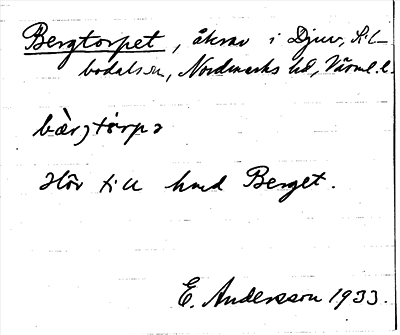 Bergtorpet, åkrar i Djuv, Sil-
bodals sn, Nordmarks hd, Värml. l.
Hör till hmd Berget.
E. Andersson 1933.